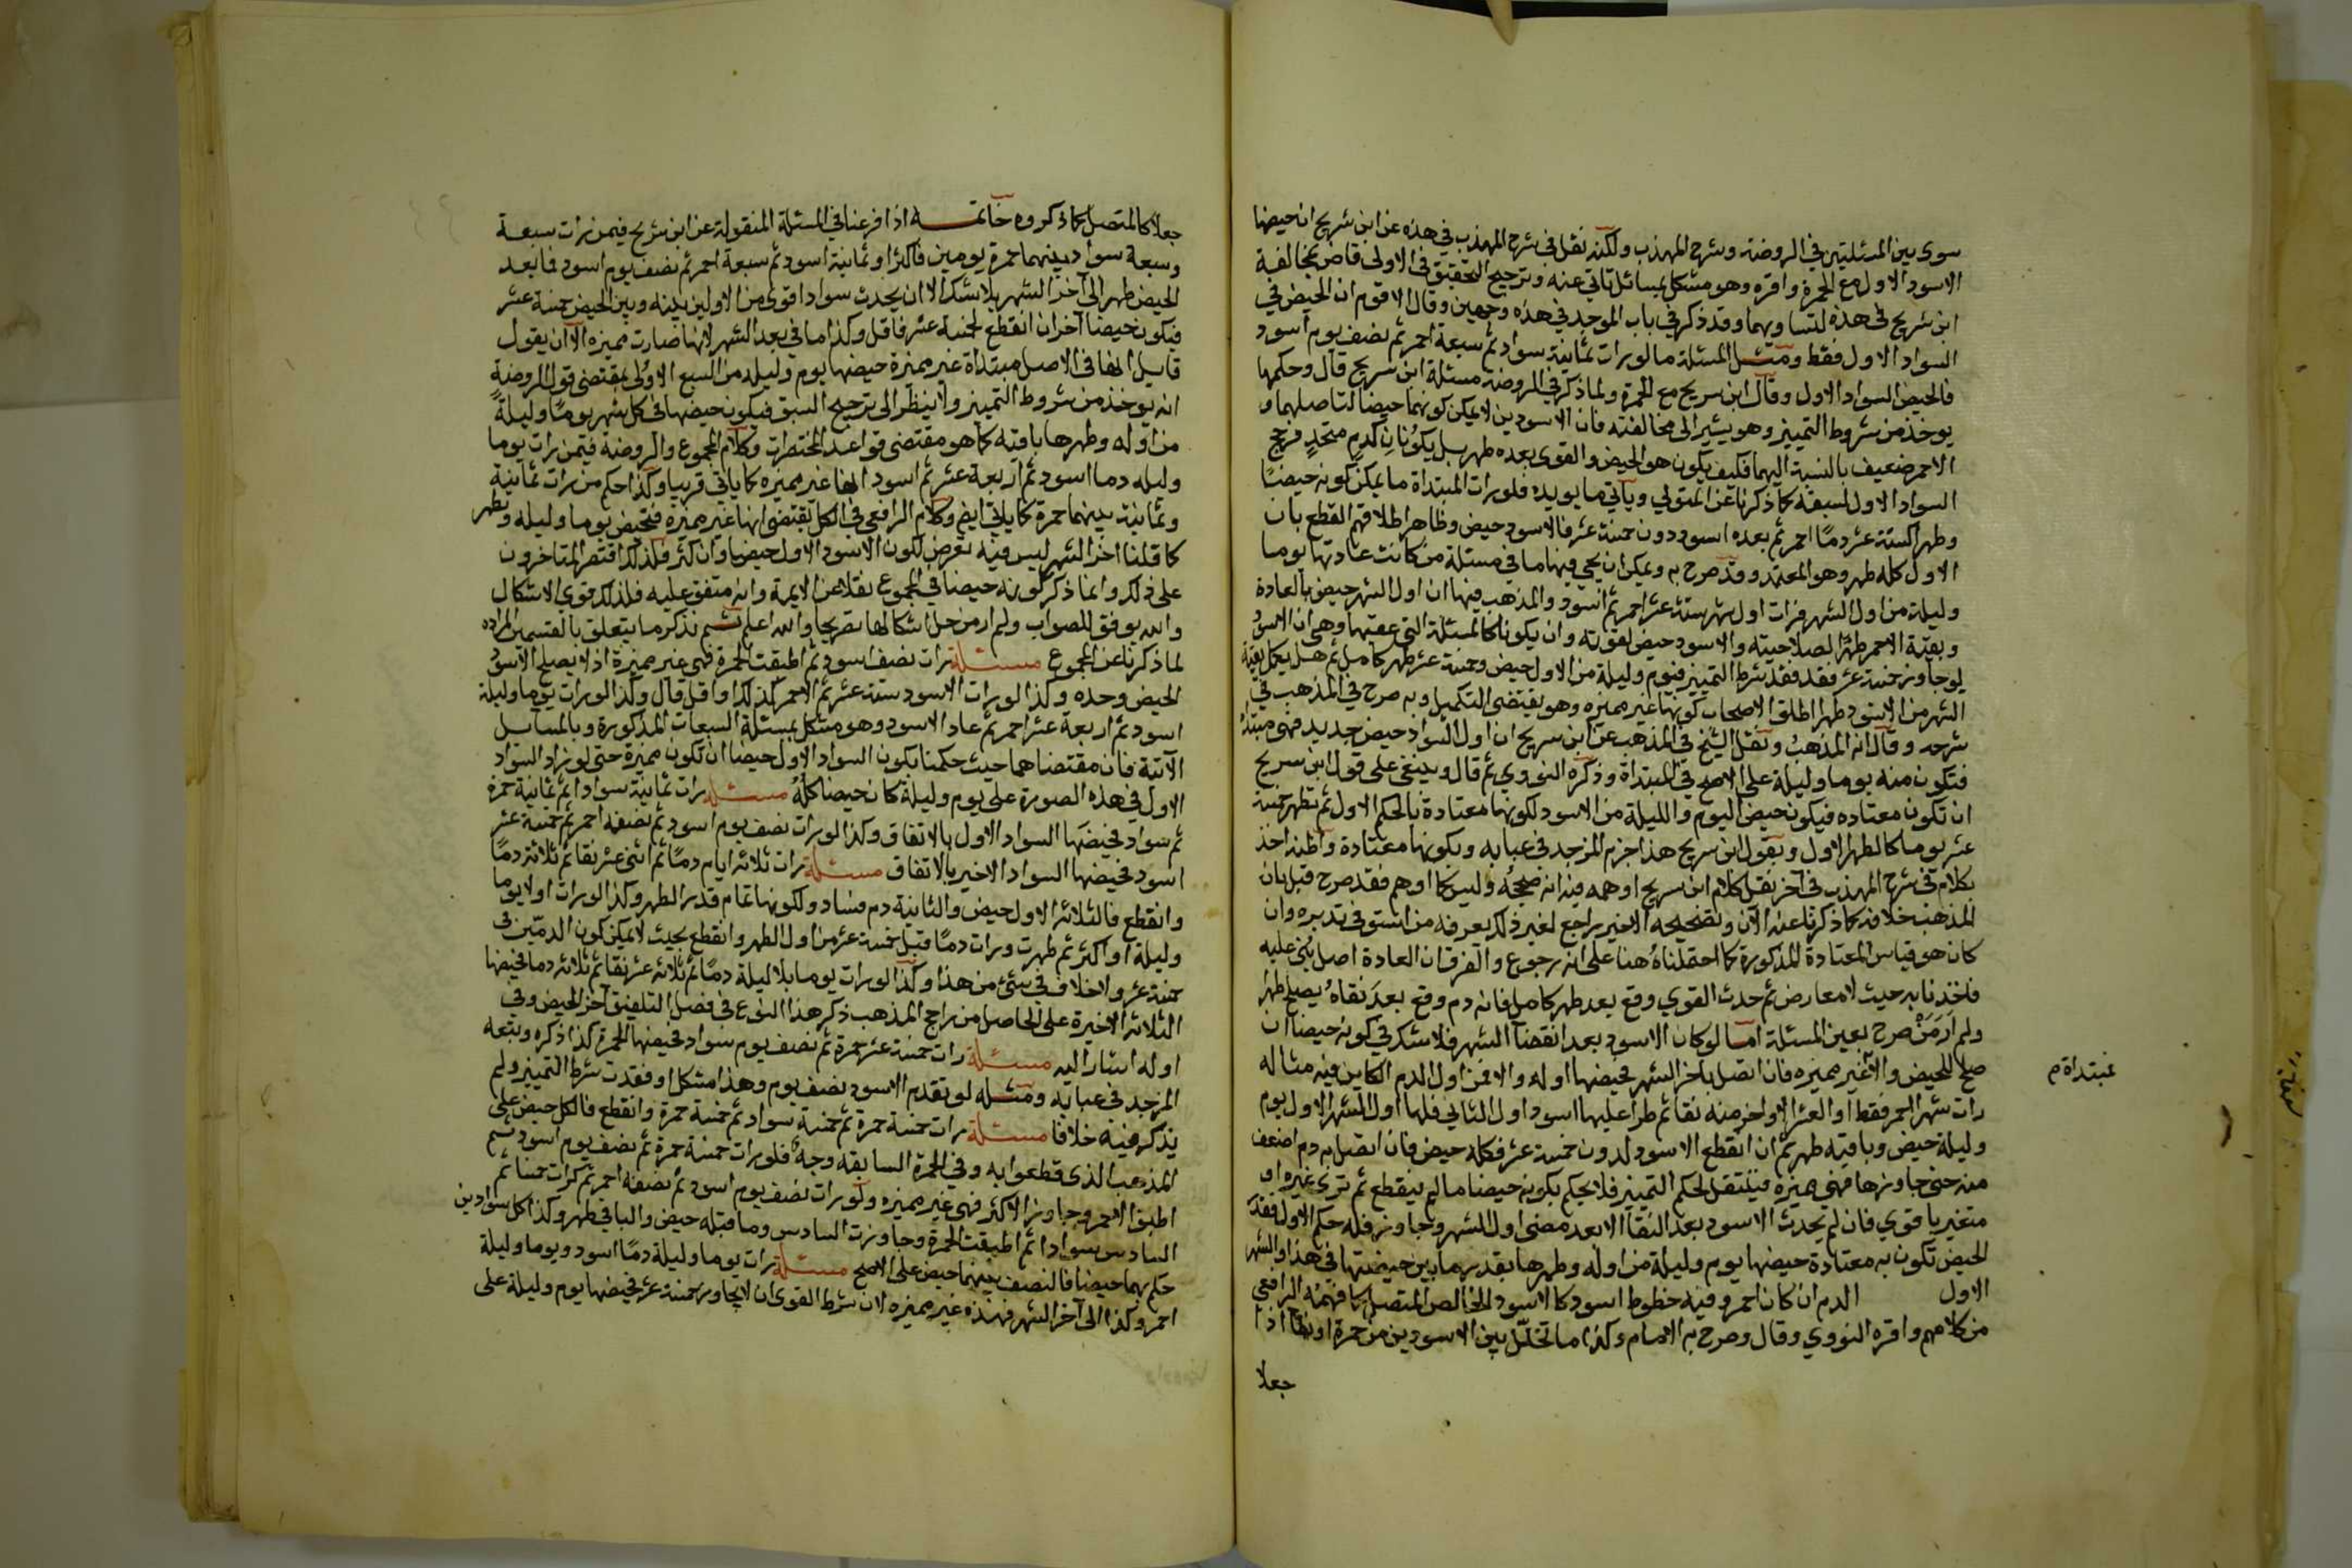 سوى بين المسئلتين في الروضة وشرح المهذب ولكنه نقل في شرح المهذب في هذه عن ابن شريح ان حيضها
الاسود الاول مع الحمرة واقره وهو مشكل بمسائل تاتي عنه وترجيح التحقيق في الاولى قاض بمخالفة
ابن شريح في هذه لتساويهما وقد ذكر في باب الموجد في هذه وجهين وقال الاقوم ان الحيض في
السواد الاول فقط ومثل المسئلة ما لو رات ثمانية سواد ثم سبعة احمر ثم نصف يوم اسود
فالحيض السواد الاول وقال ابن سريج مع الحمرة ولما ذكر في الروضة مسئلة ابن سريج قال وحكمها
يوخذ من شروط التمييز وهو يشير الى مخالفته فان الاسودين لا يمكن كونهما حيضا لتاصلهما و
الاحمر ضعيف بالنسبة اليهما فكيف يكون هو الحيض والقوى بعده طهر بل يكونان كدم متحد فرجح
السواد الاول لسبقه كما ذكرنا عن المتولي وياتي ما يويده فلو رات المبتداة ما يمكن كونه حيضًا
وطهرا كستة عشر دمًا احمر ثم بعده اسود دون خمسة عشر فالاسود حيض وظاهر اطلاقهم القطع بان
الاول كله طهر وهو المعتمد وقد صرح به ويمكن ان يجي فيها ما في مسئلة من كانت عادتها يوما
وليلة من اول الشهر فرات اول شهر ستة عشر احمر ثم اسود والمذهب فيها ان اول الشهر حيض بالعادة
وبقية الاحمر طهرًا لصلاحيته والاسود حيض لقوته وان يكونا كالمسئلة التي عقبها وهي ان الاسود
لو جاوز خمسة عشر فقد فقد شرط التمييز فيوم وليلة من الاول حيض وخمسة عشر طهر كامل ثم هل يكمل بقية
الشهر من الاسود طهرا اطلق الاصحاب كونها غير مميزه وهو يقتضى التكميل وبه صرح في المذهب في
شرحه وقال انه المذهب ونقل الشيخ في المذهب عن ابن سريج ان اول السواد حيض جديد فهى مبتداة
فتكون منه يوما وليلة على الاصح في المبتداة وذكره النووي ثم قال وينبغى على قول ابن سريج
ان تكون معتاده فيكون حيض اليوم والليلة من الاسود لكونها معتادة بالحكم الاول ثم تطهر خمسة
عشر يوما كالطهر الاول وبقول ابن سريج هذا جزم المزجد في عبابه وبكونها معتادة واظنه اخذ
بكلام في شرح المهذب في آخر نقل كلام ابن سريج اوهمه فيه انه صححه وليس كما اوهم فقد صرح قبل بان
المذهب خلافه كما ذكرنا عنه الآن وتصحيحه الاخير راجع لغير ذلك يعرفه من استوفى تدبره وان
كان هو قياس المعتادة المذكورة كما احتملناه هنا على انه رجوع والفرق ان العادة اصل بني عليه
فاخذنا به حيث لا معارض ثم حدث القوي وقع بعد طهر كامل فانه دم وقع بعد نقاه يصلح طهرا
ولم ار من صرح بعين المسئلة اما لو كان الاسود بعد انقضا الشهر فلا شك في كونه حيضا ان
صلح للحيض والا غير مميزه فان اتصل باخر الشهر فحيضها اوله والا فمن اول الدم الكاين فيه مثاله
مبتداة م
رات شهرا احمر فقط او العشر الاواخر منه نقا ثم طرا عليها اسود اول الثاني فلها اول الشهر الاول يوم
وليلة حيض وباقيه طهر ثم ان انقطع الاسود لدون خمسة عشر فكله حيض فان اتصل به دم اضعف
منه حتى جاوزها فهى مميزة فينتقل لحكم التمييز فلا يحكم بكونه حيضا ما لم ينقطع ثم ترى غيره او
متغير باقوي فان لم يحدث الاسود بعد النقا الا بعد مضى اول الشهر وجاوز فله حكم الاول ففقد
الحيض تكون به معتادة حيضها يوم وليلة من اوله وطهرها بقدر ما بين حيضتها في هذا والشهر
الاول الدم ان كان احمر وفيه خطوط اسود كالاسود الخالص المتصل كما فهمه الرافعي
من كلامهم واقره النووي وقال وصرح به الامام وكذا ما تخلل بين الاسودين من حمرة او نقا اذا
جعلا
جعلا كالمتصل كما ذكروه خاتمــه اذا فرعنا في المسئلة المنقولة عن ابن شريح فيمن رات سبعة
وسبعة سواد بينهما حمرة يومين فاكثر او ثمانية اسود ثم سبعة احمر ثم نصف يوم اسود فما بعد
الحيض طهر الى آخر الشهر بلا شك الا ان يحدث سواد اقوى من الاولين بينه وبين الحيض خمسة عشر
فيكون حيضا آخر ان انقطع لخمسة عشر فاقل وكذا ما في بعد الشهر لانها صارت مميزه الا ان يقول
قايل انها في الاصل مبتداة غير مميزة حيضها يوم وليلة من السبع الاولى بمقتضى قول الروضة
انه يوخذ من شروط التمييز ولا ينظر الى ترجيح السبق فيكون حيضها في كل شهر يومًا وليلة
من اوله وطهرها باقيه كما هو مقتضى قواعد المختصرات وكلام المجموع والروضة فيمن رات يوما
وليله دما اسود ثم اربعة عشر ثم اسود انها غير مميره كما ياتي قريبا وكذا حكم من رات ثمانية
وثمانية بينهما حمرة كما ياتي ايض وكلام الرافعي في الكل يقتضى انها غير مميزه فتحيض يوما وليله وتطهر
كما قلنا اخر الشهر ليس فيه تعرض لكون الاسود الاول حيضا وان كثر فلذلك اقتصر المتاخرون
على ذلك وانما ذكر كونه حيضا في المجموع نقلا عن الايمة وانه متفق عليه فلذلك قوي الاشكال
والله يوفق للصواب ولم ار من حل اشكالها تصريحا والله اعلم ثــم نذكر ما يتعلق بالقسمين المراده
لما ذكرنا عن المجموع مسئلة رات نصفا اسود ثم اطبقت الحمرة فهى غير مميزة اذ لا يصلح الاسود
الحيض وحده وكذا لو رات الاسود ستة عشر ثم الاحمر كذلك او اقل قال وكذا لو رات يوما وليلة
اسود ثم اربعة عشر احمر ثم عاد الاسود وهو مشكل بمسئلة السبعات المذكورة وبالمسايل
الآتية فان مقتضاهما حيث حكمنا بكون السواد الاول حيضا ان تكون مميزة حتى لو زاد السواد
الاول في هذه الصورة على يوم وليلة كان حيضا كله مسئلة رات ثمانية سوادا ثم ثمانية حمرة
ثم سواد فحيضها السواد الاول بالاتفاق وكذا لو رات نصف يوم اسود ثم نصفه احمر ثم خمسة عشر
اسود فحيضها السواد الاخير بالاتفاق مسئلة رات ثلاثة ايام دمًا ثم اثني عشر نقا ثم ثلاثة دمًا
وانقطع فالثلاثة الاول حيض والثانية دم فساد ولكونها تمام قدر الطهر وكذا لو رات اولا يوما
وليلة او اكثر ثم طهرت ورات دمًا قبل خمسة عشر من اول الطهر وانقطع بحيث لا يمكن كون الدمين في
خمسة عشر ولا خلاف في شئ من هذا وكذا لو رات يوما بلا ليلة دمًا ثم ثلاثة عشر نقا ثم ثلاثة دما فحيضها
الثلاثة الاخيرة على الحاصل من راجح المذهب ذكر هذا النوع في فصل التلفيق آخر الحيض وفي
اوله اشار اليه مسئلة رات خمسة عشر حمرة ثم نصف يوم سواد فحيضها الحمرة كذا ذكره وتبعه
المزجد في عبابه ومثله لو تقدم الاسود نصف يوم وهذا مشكل اذ فقدت شرط التمييز ولم
يذكر فيه خلافا مسئلة رات خمسة حمرة ثم خمسة سواد ثم خمسة حمرة وانقطع فالكل حيض على
المذهب الذى قطعوا به وفي الحمرة السابقه وجه فلو رات خمسة حمرة ثم نصف يوم اسود ثم
اطبق الاحمر وجاوز الاكثر فهى غير مميزه ولو رات نصف يوم اسود ثم نصفه احمر ثم كرات خمسا ثم
السادس سوادا ثم اطبقت الحمرة وجاوزت السادس وما قبله حيض والباقي طهر وكذا كل سوادين
حكم بهما حيضا فالنصف بينهما حيض على الاصح مسئلة رات يوما وليلة دمًا اسود ويوما وليلة
احمر وكذا الى آخر الشهر فهذه غير مميزه لان شرط القوى ان لا يجاوز خمسة عشر فحيضها يوم وليلة على